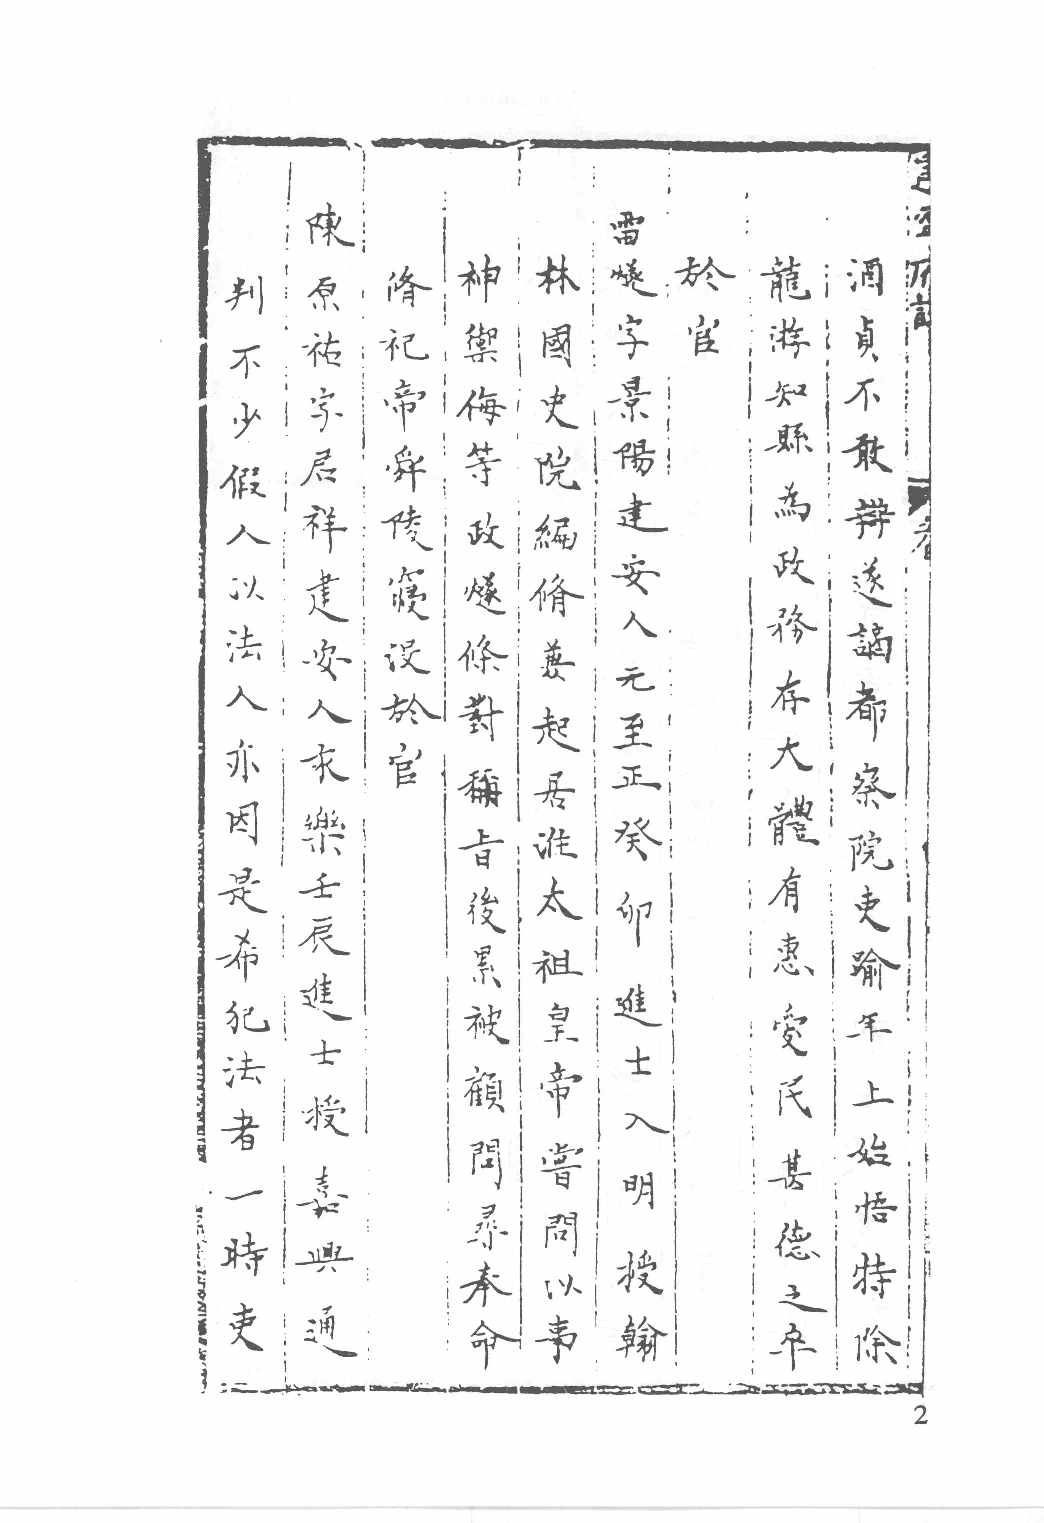 酒貞不敢辯遂謫都察院吏踰年上始悟特除
龍游知縣為政務存大體有惠愛民甚德之卒
於官
雷燧字景陽建安人元至正癸卯進士入明授翰
林國史院編脩兼起居注太祖皇帝嘗問以事
神禦侮等政燧條對稱旨後累被顧問尋奉命
脩祀帝舜陵寢沒於官
陳原祐字君祥建安人永樂壬辰進士授嘉興通
判不少假人以法人亦因是希犯法者一時吏
2